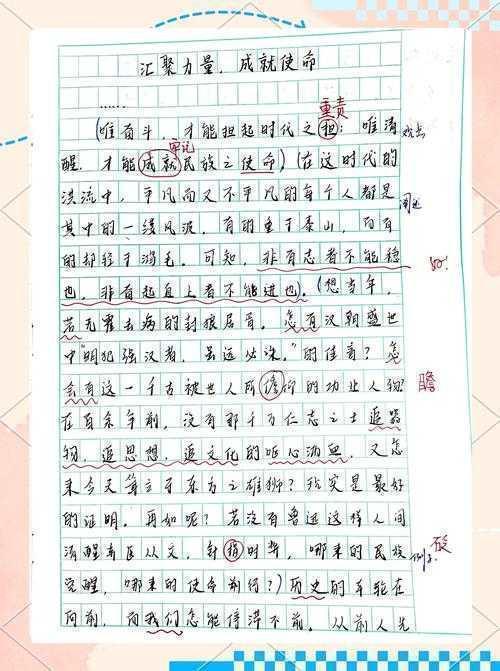 汇聚力量,成就使命
……
重责
(唯奋斗,才能担起时代之担;唯清
观点
牢记
醒,才能成就民族之使命)(在这时代的
洪流中,平凡而又不平凡的每个人都是
阐述
其中的一缕风波,有的重于泰山,而有
的却轻于鸿毛。可知,非有志者不能稳
也,非奋起直上者不能进也)。(想当年,
若无霍去病的封狼居胥。怎有汉朝盛世
中"明犯强汉者,虽远必诛。"的佳音?怎
会有这一千古被世人所儋仰的功让人物?
瞻
在百余年前,没有那千万仁志之士追器
物,追思想,追文化的呕心沥血,又怎
来今天耸立于东方之雄狮?事实是最好
的证明。再如呢?若没有鲁迅这样人间
清醒弃医从文,针指时弊,哪来的民族
砭
例子
完醒,哪来的使命前行?)历史的车轮在
向前,而我们怎能停滞不前。从前人先